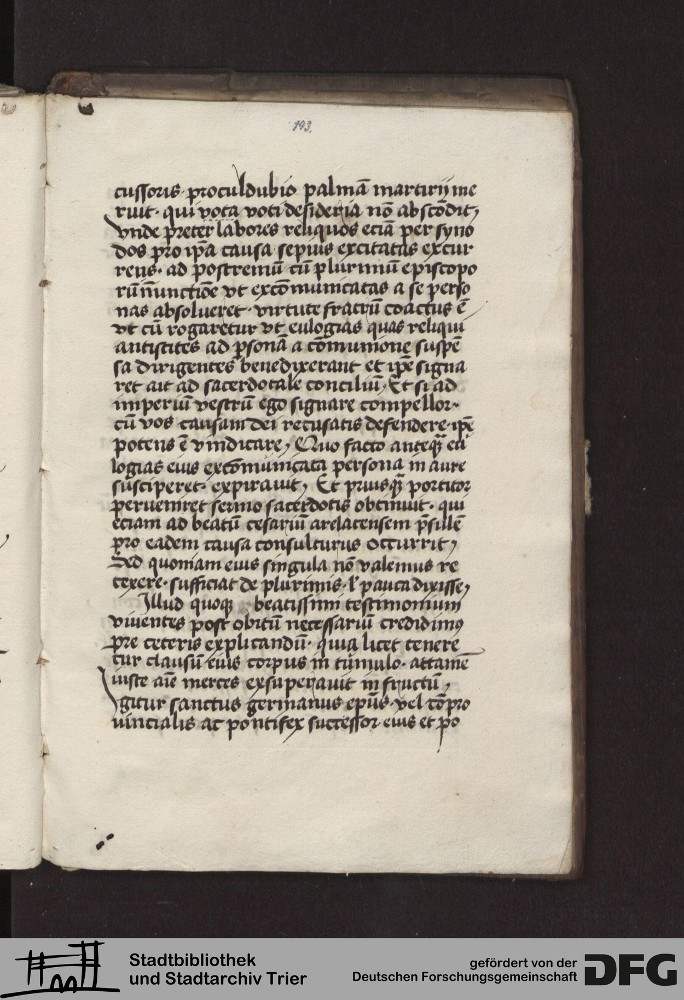 193.
cussoris · proculdubio palmā martirij me
ruit · qui vota voti desideria nō abscōdit,
vnde preter labores reliquos eciā per syno
dos pro ipā causa sepius excitatas excur
rens · ad postremū cū plurimū episcopo
rū īniunctiōe vt excōmunicatas a se perso
nas absolueret · virtute fratrū coactus ē
vt cū rogaretur vt eulogias quas reliqui
antistites ad psonā a cōmunione suspē
sa dirigentes benedixerant et ipe signa
ret ait ad sacerdotale conciliū, Et si ad
imperiū vestrū ego signare compellor ·
cū vos causam dei recusatis defendere · ipē
potens ē vindicare, Quo facto anteq̄ eu
logias eius excōmunicata persona in aure
susciperet · expirauit, Et priusq̄ portitor
perueniret sermo sacerdotis obtinuit · qui
eciam ad beatū cesariū arelatensem p̄sulē
pro eadem causa consulturus occurrit,
Sed quoniam eius singula nō valemus re
texere · sufficiat de plurimis · l' pauca dixisse,
Illud quoque beatissimi testimonium
viuentes post obitū necessariū credidimꝰ
pre ceteris explicandū · quia licet tenere
tur clausū eius corpus in tumulo · attamē
iuste aīe merces exsuperauit in fructū,
Igitur sanctus germanus ep̄us · vel cōpro
uincialis ac pontifex successor eius et po
Stadtbibliothek
und Stadtarchiv Trier
gefördert von der
Deutschen Forschungsgemeinschaft
DFG